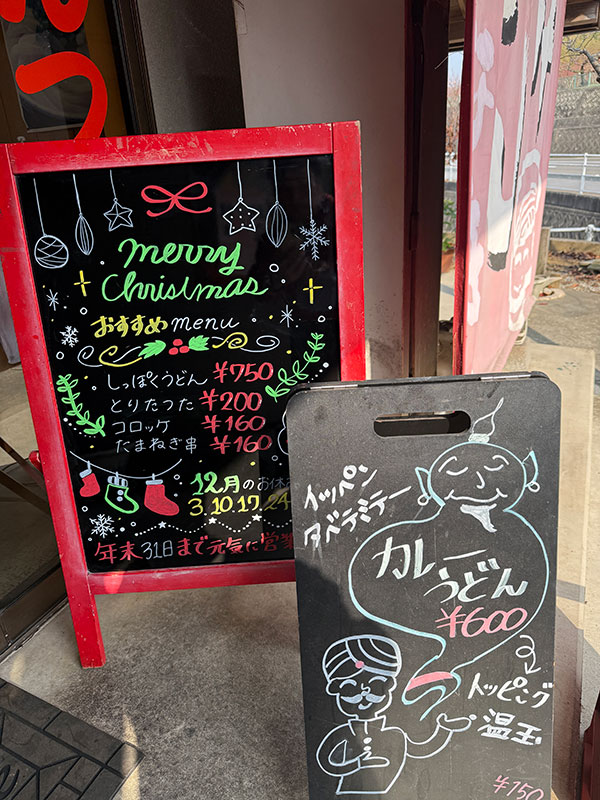 merry
Christmas
おすすめ menu
しっぽくうどん ¥750
とりたつた ¥200
コロッケ ¥160
たまねぎ串 ¥160
12月のお休み
3.10.17.24
年末31日まで元気に営業
イッペン
タベテミテー
カレー
うどん
¥600
トッピング
温玉
¥150